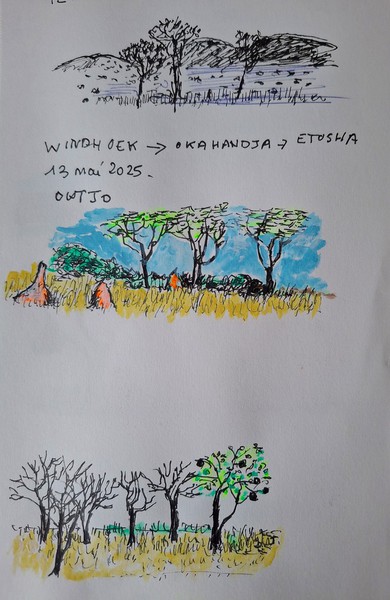 12
WINDHOEK → OKAHANDJA → ETOSHA
13 mai 2025.
OUTJO